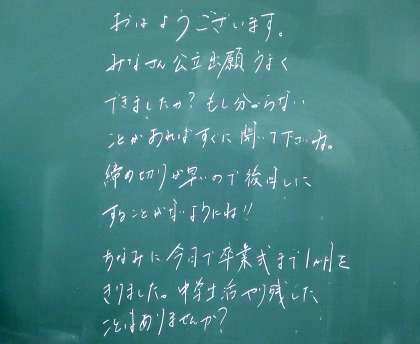 おはようございます。
みなさん公立出願うまく
できましたか？もし分からない
ことがあればすぐに聞いて下さいね。
締め切りが早いので後回しに
することがないようにね!!
ちなみに今日で卒業式まで1ヶ月を
きりました。中学生活やり残した
ことはありませんか？